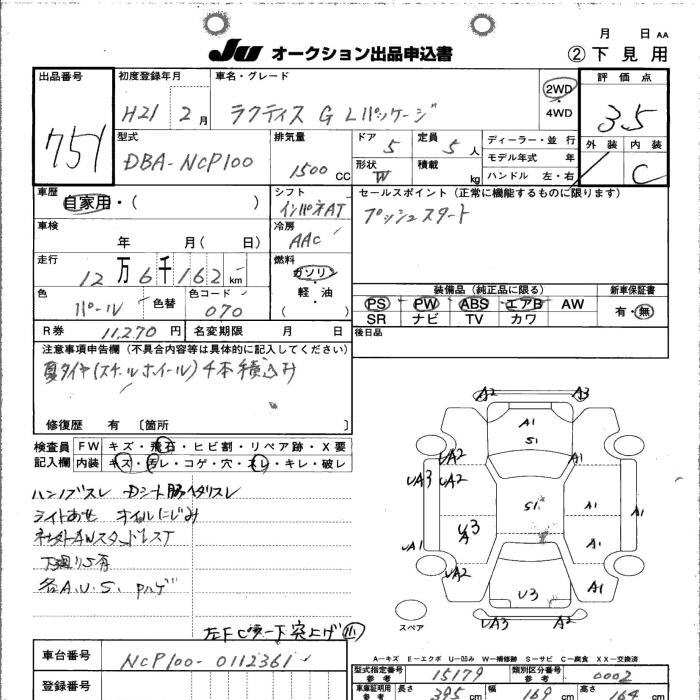 月 日 AA
JU オークション出品申込書
② 下見用
出品番号
751
初度登録年月
H21 2月
車名・グレード
ラクティス G Lパッケージ
2WD
・
4WD
評価点
3.5
外装 内装
C
型式
DBA-NCP100
排気量
1500 CC
ドア
5
定員
5 人
形状
W
積載
kg
ディーラー・並行
モデル年式 年
ハンドル 左・右
車歴
自家用・( )
シフト
インパネAT
セールスポイント (正常に機能するものに限ります)
プッシュスタート
車検
年 月( 日)
冷房
AAC
走行
12万6千162 km
燃料
ガソリン
・
軽・油
( )
色
パール
色替
色コード
070
装備品 (純正品に限る)
PS PW ABS エアB AW
SR ナビ TV カワ
新車保証書
有・無
R券 11,270 円
名変期限 月 日
後日品
注意事項申告欄 (不具合内容等は具体的に記入してください)
夏タイヤ(スチールホイール)4本積込み
修復歴 有 〔箇所 〕
検査員
記入欄
FW キズ・飛石・ヒビ割・リペア跡・X要
内装 キズ・汚レ・コゲ・穴・スレ・キレ・破レ
ハンドブスレ Dシート脇ヘタリスレ
ライトあせ オイルにじみ
下廻りS有
各A.U.S. Pハゲ
左FCピラー下突上げ小
A2 A3
A1
S1
UA2 A1
UA3 UA2
S1 A1 A1
U3
A
UA1 A1
UA2 A1
U3
UA3 A2
スペア
A－キズ E－エクボ U－凹み W－補修跡 S－サビ C－腐食 XX－交換済
車台番号
NCP100-0112361
登録番号
型式指定番号
参考
15179
類別区分番号
参考
0002
車庫証明用
参考
長さ
395 cm
幅
169 cm
高さ
164 cm